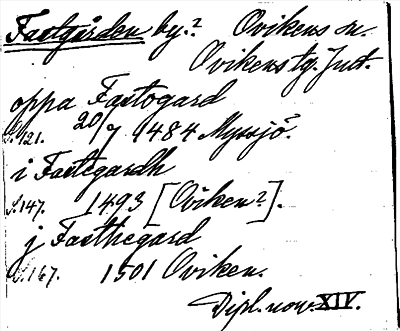 Fastgården by.? Ovikens sn.
Ovikens tg. Jmt.
oppa Fastogard
S. 121. 20/7 1484 Myssjö.
i Fastegardh
S. 147. 1493 [Oviken?].
j Fasthegard
S. 167. 1501 Oviken.
Dipl. norv. XIV.